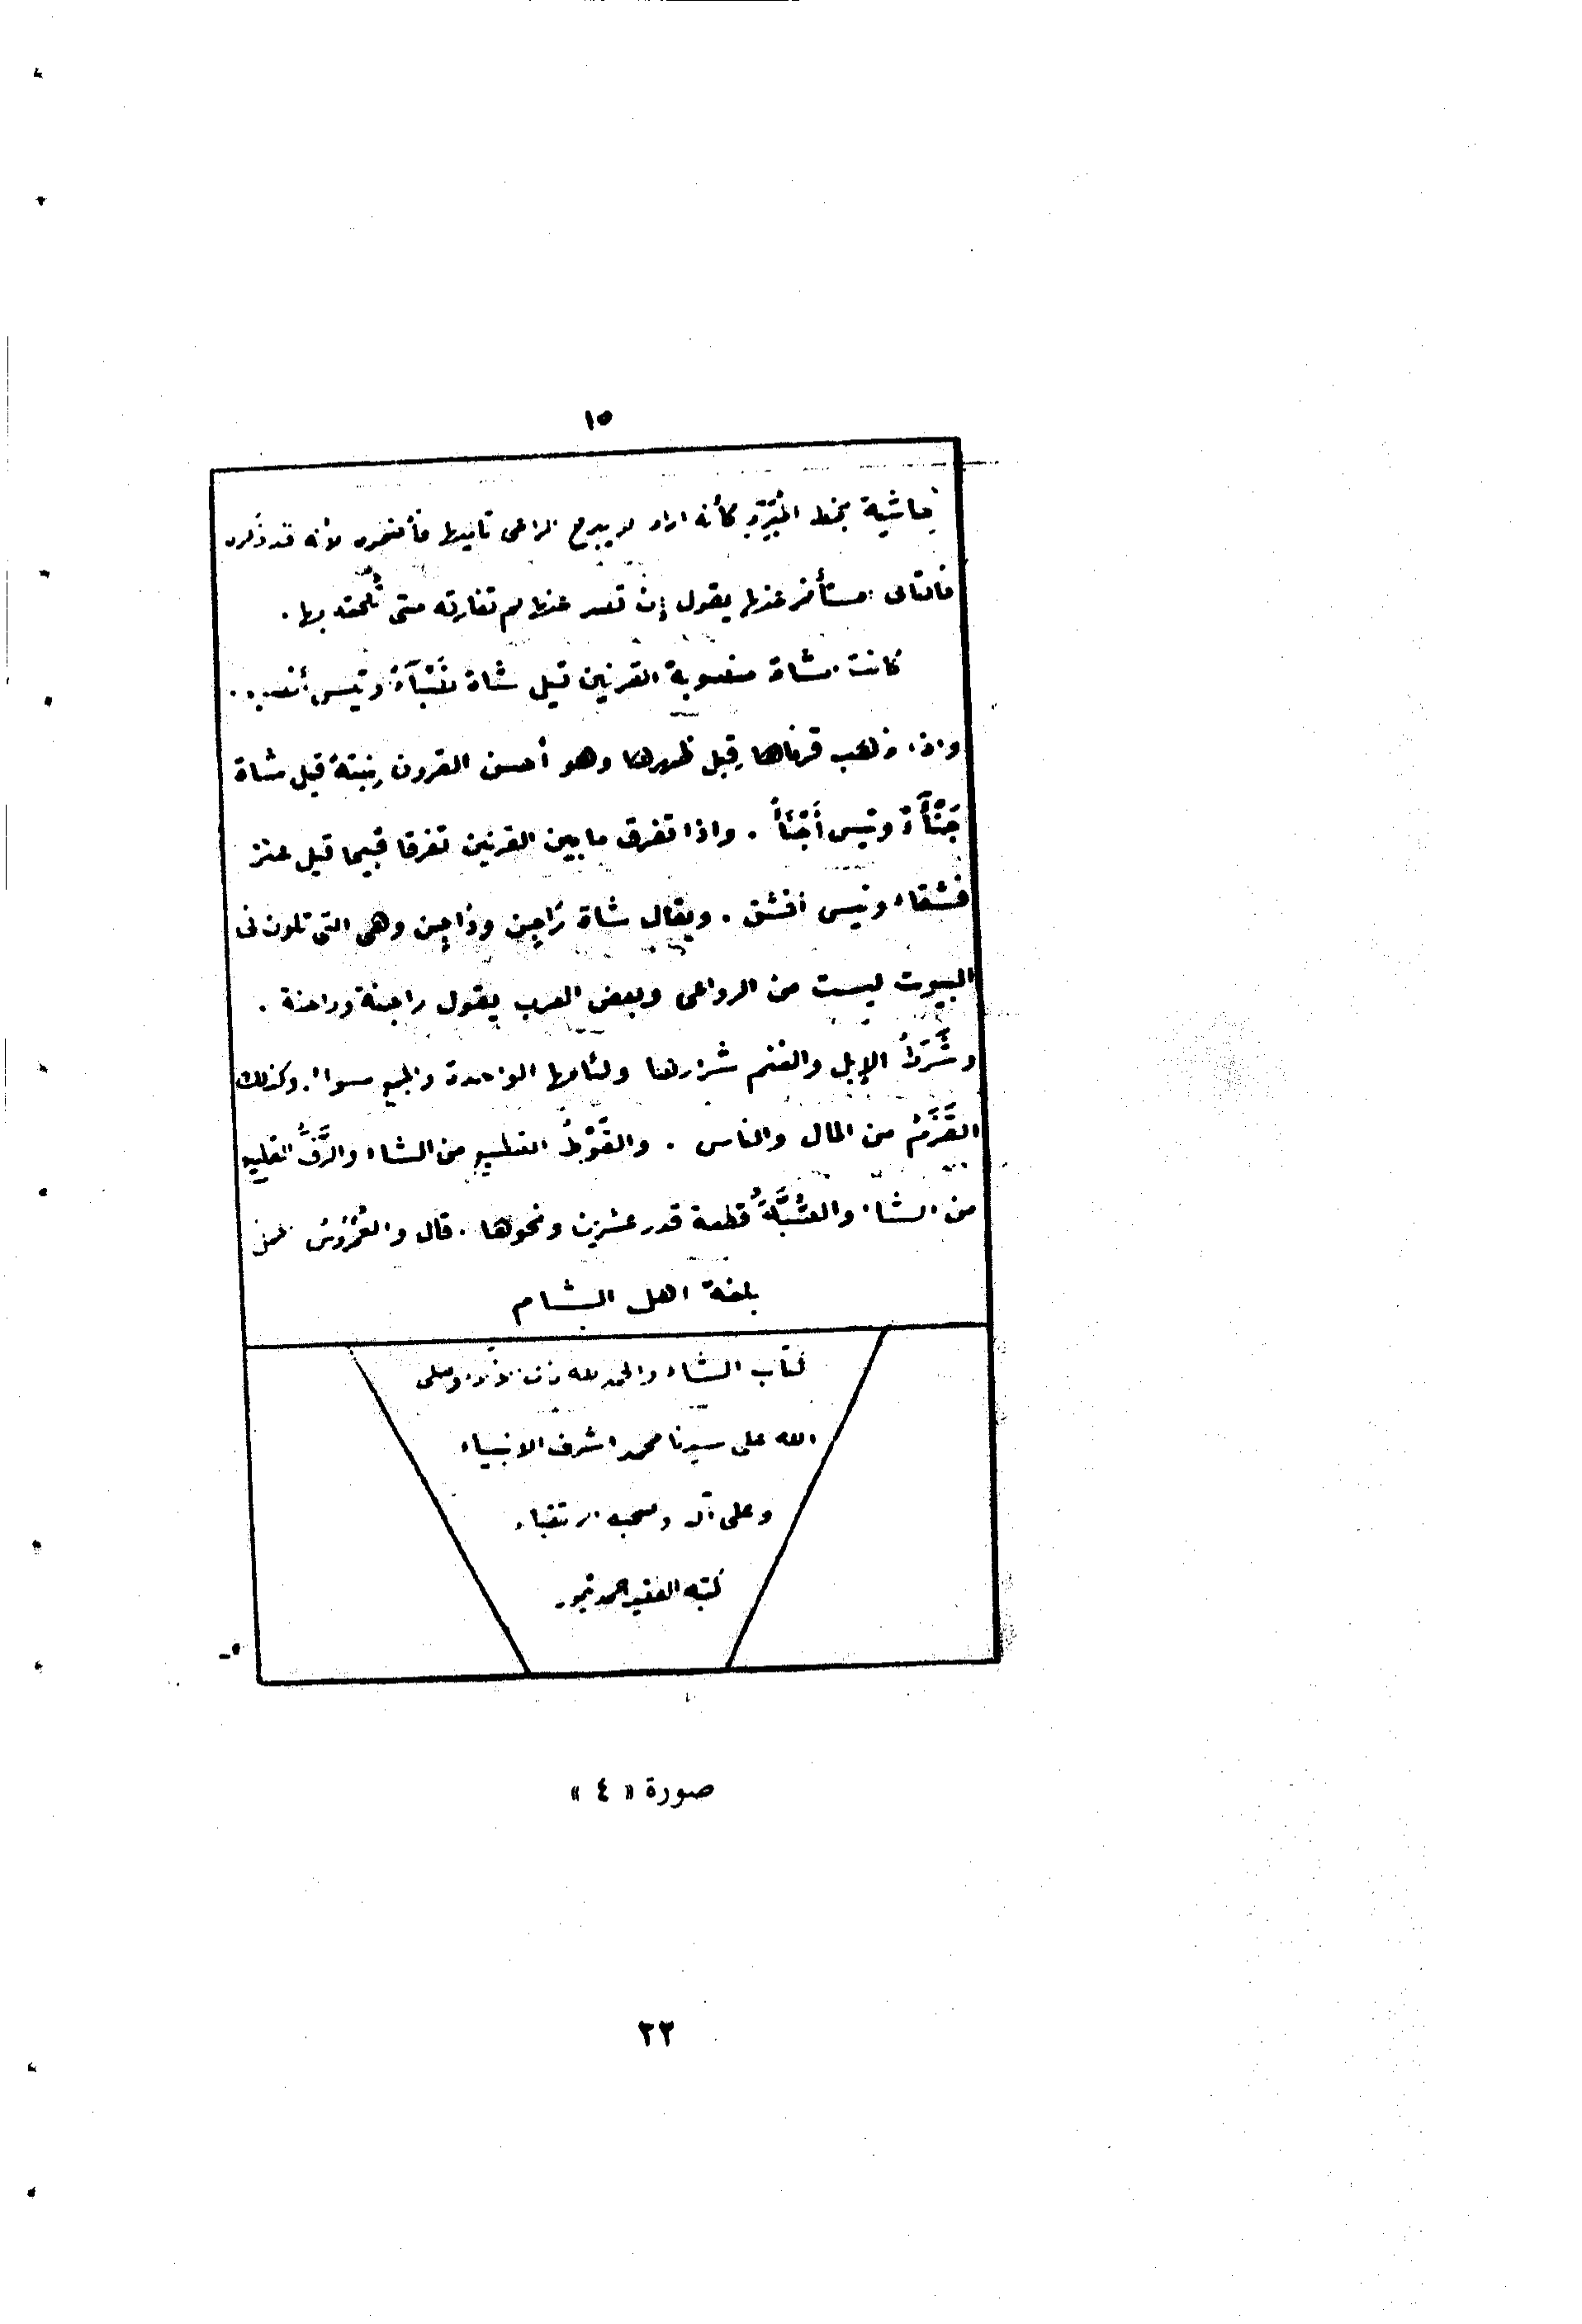 ١٥
حاشية بخط المبرد كأنه اراد لا يبرح الراعى لأنه قد ذكره
فالتالى مستأخر عنها يقول إن تعد عنها لم تفارقه حتى تلحقه بها .
كانت الشاة منصوبة القرنين قيل شاة نَصْبَآءُ وتيس أنصب . .
واذا ذهب قرناها قِبل ظهرها وهو أحسن القرون نِبتةً قيل شاة
جَنْآَةٌ وتيس أَجْنَأُ . واذا تفرق ما بين القرنين تفرقا قبيحا قيل عنز
فشقاء وتيس افشق . ويقال شاة رَاجِن ودَاجِن وهى التى تكون فى
البيوت ليست من الرواعى وبعض العرب يقول راجنة وداجنة .
وشَرَطُ الإبل والغنم شرارها ولئامها الواحدة والجميع سواء . وكذلك
القَزَمُ من المال والناس . والقَوْطُ القطيع من الشاء والرَّفُّ القطيع
من الشاء والصُّبَّةُ قطعة قدر عشرين ونحوها . قال
بلغة اهل الشام
كتاب الشاء والحمد لله وصلى
الله على سيدنا محمد اشرف الانبياء
وعلى آله وصحبه الاتقياء
كتبه الفقير احمد تيمور
صورة « ٤ »
٢٢